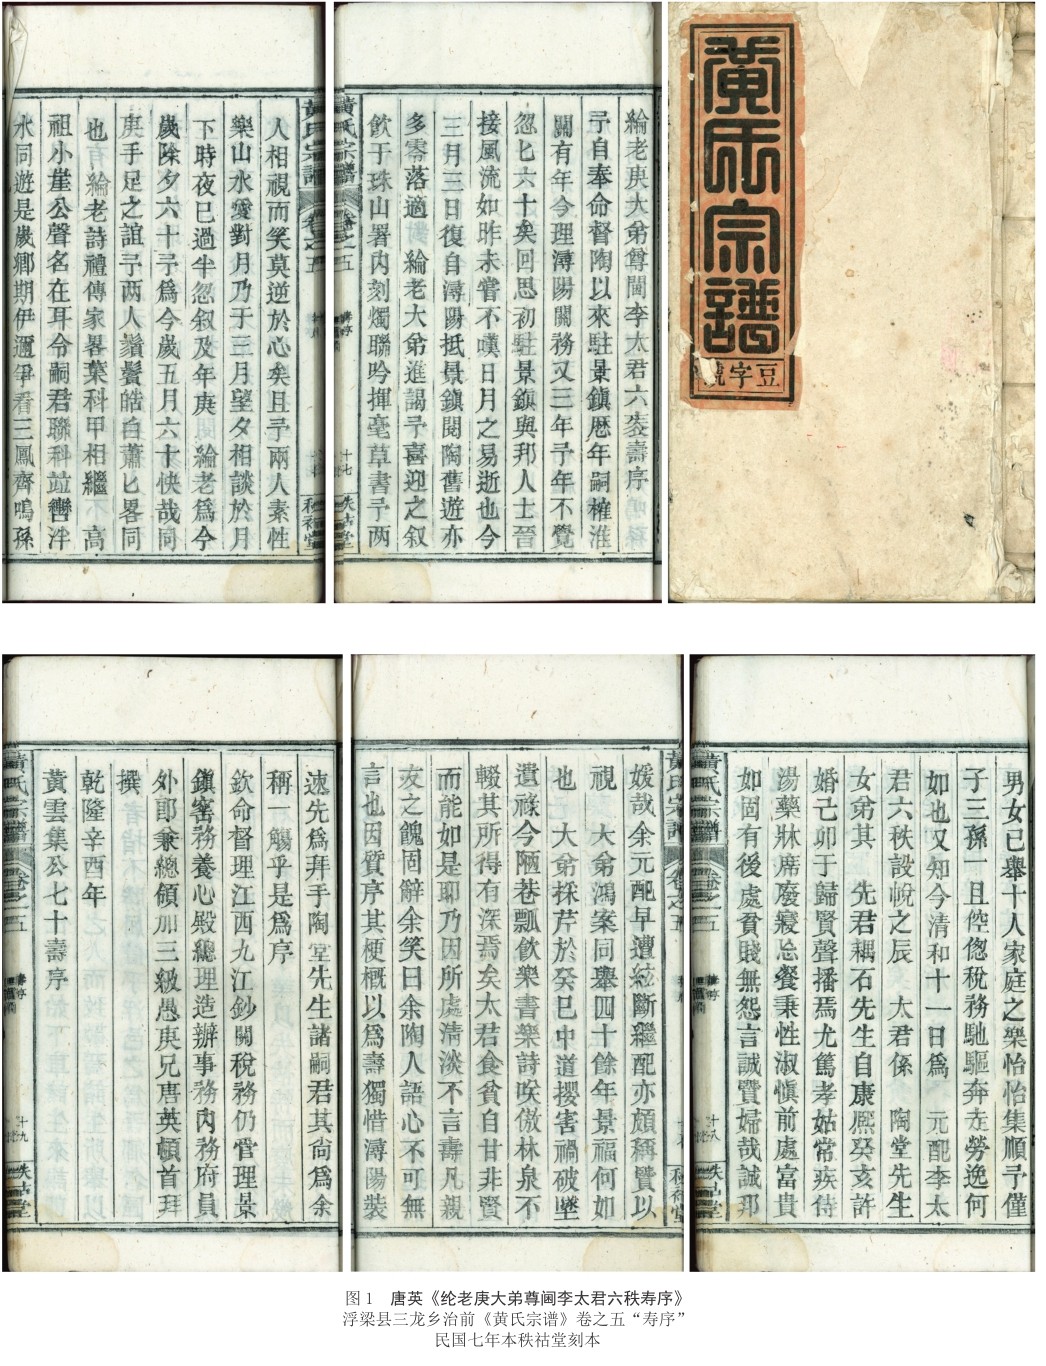 黃氏宗譜
豆字號
綸老庚大弟尊閫李太君六袠壽序
予自奉命督陶以來駐景鎮歷年嗣榷淮
關有年今理潯陽關務又三年予年不覺
忽匕六十矣回思初駐景鎮與邦人士晉
接風流如昨未嘗不嘆日月之易逝也今
三月三日復自潯陽抵景鎮閱陶舊遊亦
多零落適 綸老大弟進謁予喜迎之叙
飲于珠山署内刻燭聯吟揮毫草書予两
黃氏宗譜 卷之五 壽序 十七 秩祜堂
人相視而笑莫逆於心矣且予兩人素性
樂山水愛對月乃于三月望夕相談於月
下時夜已過半忽叙及年庚 綸老爲今
歲除夕六十予爲今歲五月六十快哉同
庚手足之誼予两人鬚鬢皓白蕭匕畧同
也有 綸老詩禮傳家畧葉科甲相繼 高
祖小崖公聲名在耳令嗣君聯科竝轡泮
水同遊是歲鄉期伊邇爭看三鳳齊鳴孫
男女已舉十人家庭之樂怡怡集順予僅
子三孫一且倥偬稅務馳驅奔走勞逸何
如也又知今清和十一日爲 元配李太
君六秩設帨之辰 太君係 陶堂先生
女弟其 先君耦石先生自康熙癸亥許
婚己卯于歸賢聲播焉尤篤孝姑常疾侍
湯藥牀席廢寢忘餐秉性淑慎前處富貴
如固有後處貧賤無怨言誠賢婦哉誠邦
黃氏宗譜 卷之五 壽序 十八 秩祜堂
媛哉余元配早遭絃斷繼配亦頗稱賢以
視 大弟鴻案同舉四十餘年景福何如
也 大弟採芹於癸巳中道攖害禍破墜
遺祿今陋巷瓢飲樂書樂詩咲傲林泉不
輟其所得有深焉矣太君食貧自甘非賢
而能如是耶乃因所處清淡不言壽凡親
友之餽固辭余笑曰余陶人語心不可無
言也因質序其梗概以爲壽獨惜潯陽裝
速先爲拜手陶堂先生諸嗣君其尙爲余
稱一觴乎是爲序
欽命督理江西九江鈔關稅務仍管理景
鎮窰務養心殿總理造辦事務內務府員
外郎兼總領加三級愚庚兄唐英頓首拜
撰
乾隆辛酉年
黃雲集公七十壽序
黃氏宗譜 卷之五 壽序 十九 秩祜堂
图 1 唐英《纶老庚大弟尊阃李太君六秩寿序》
浮梁县三龙乡治前《黄氏宗谱》卷之五“寿序”
民国七年本秩祜堂刻本